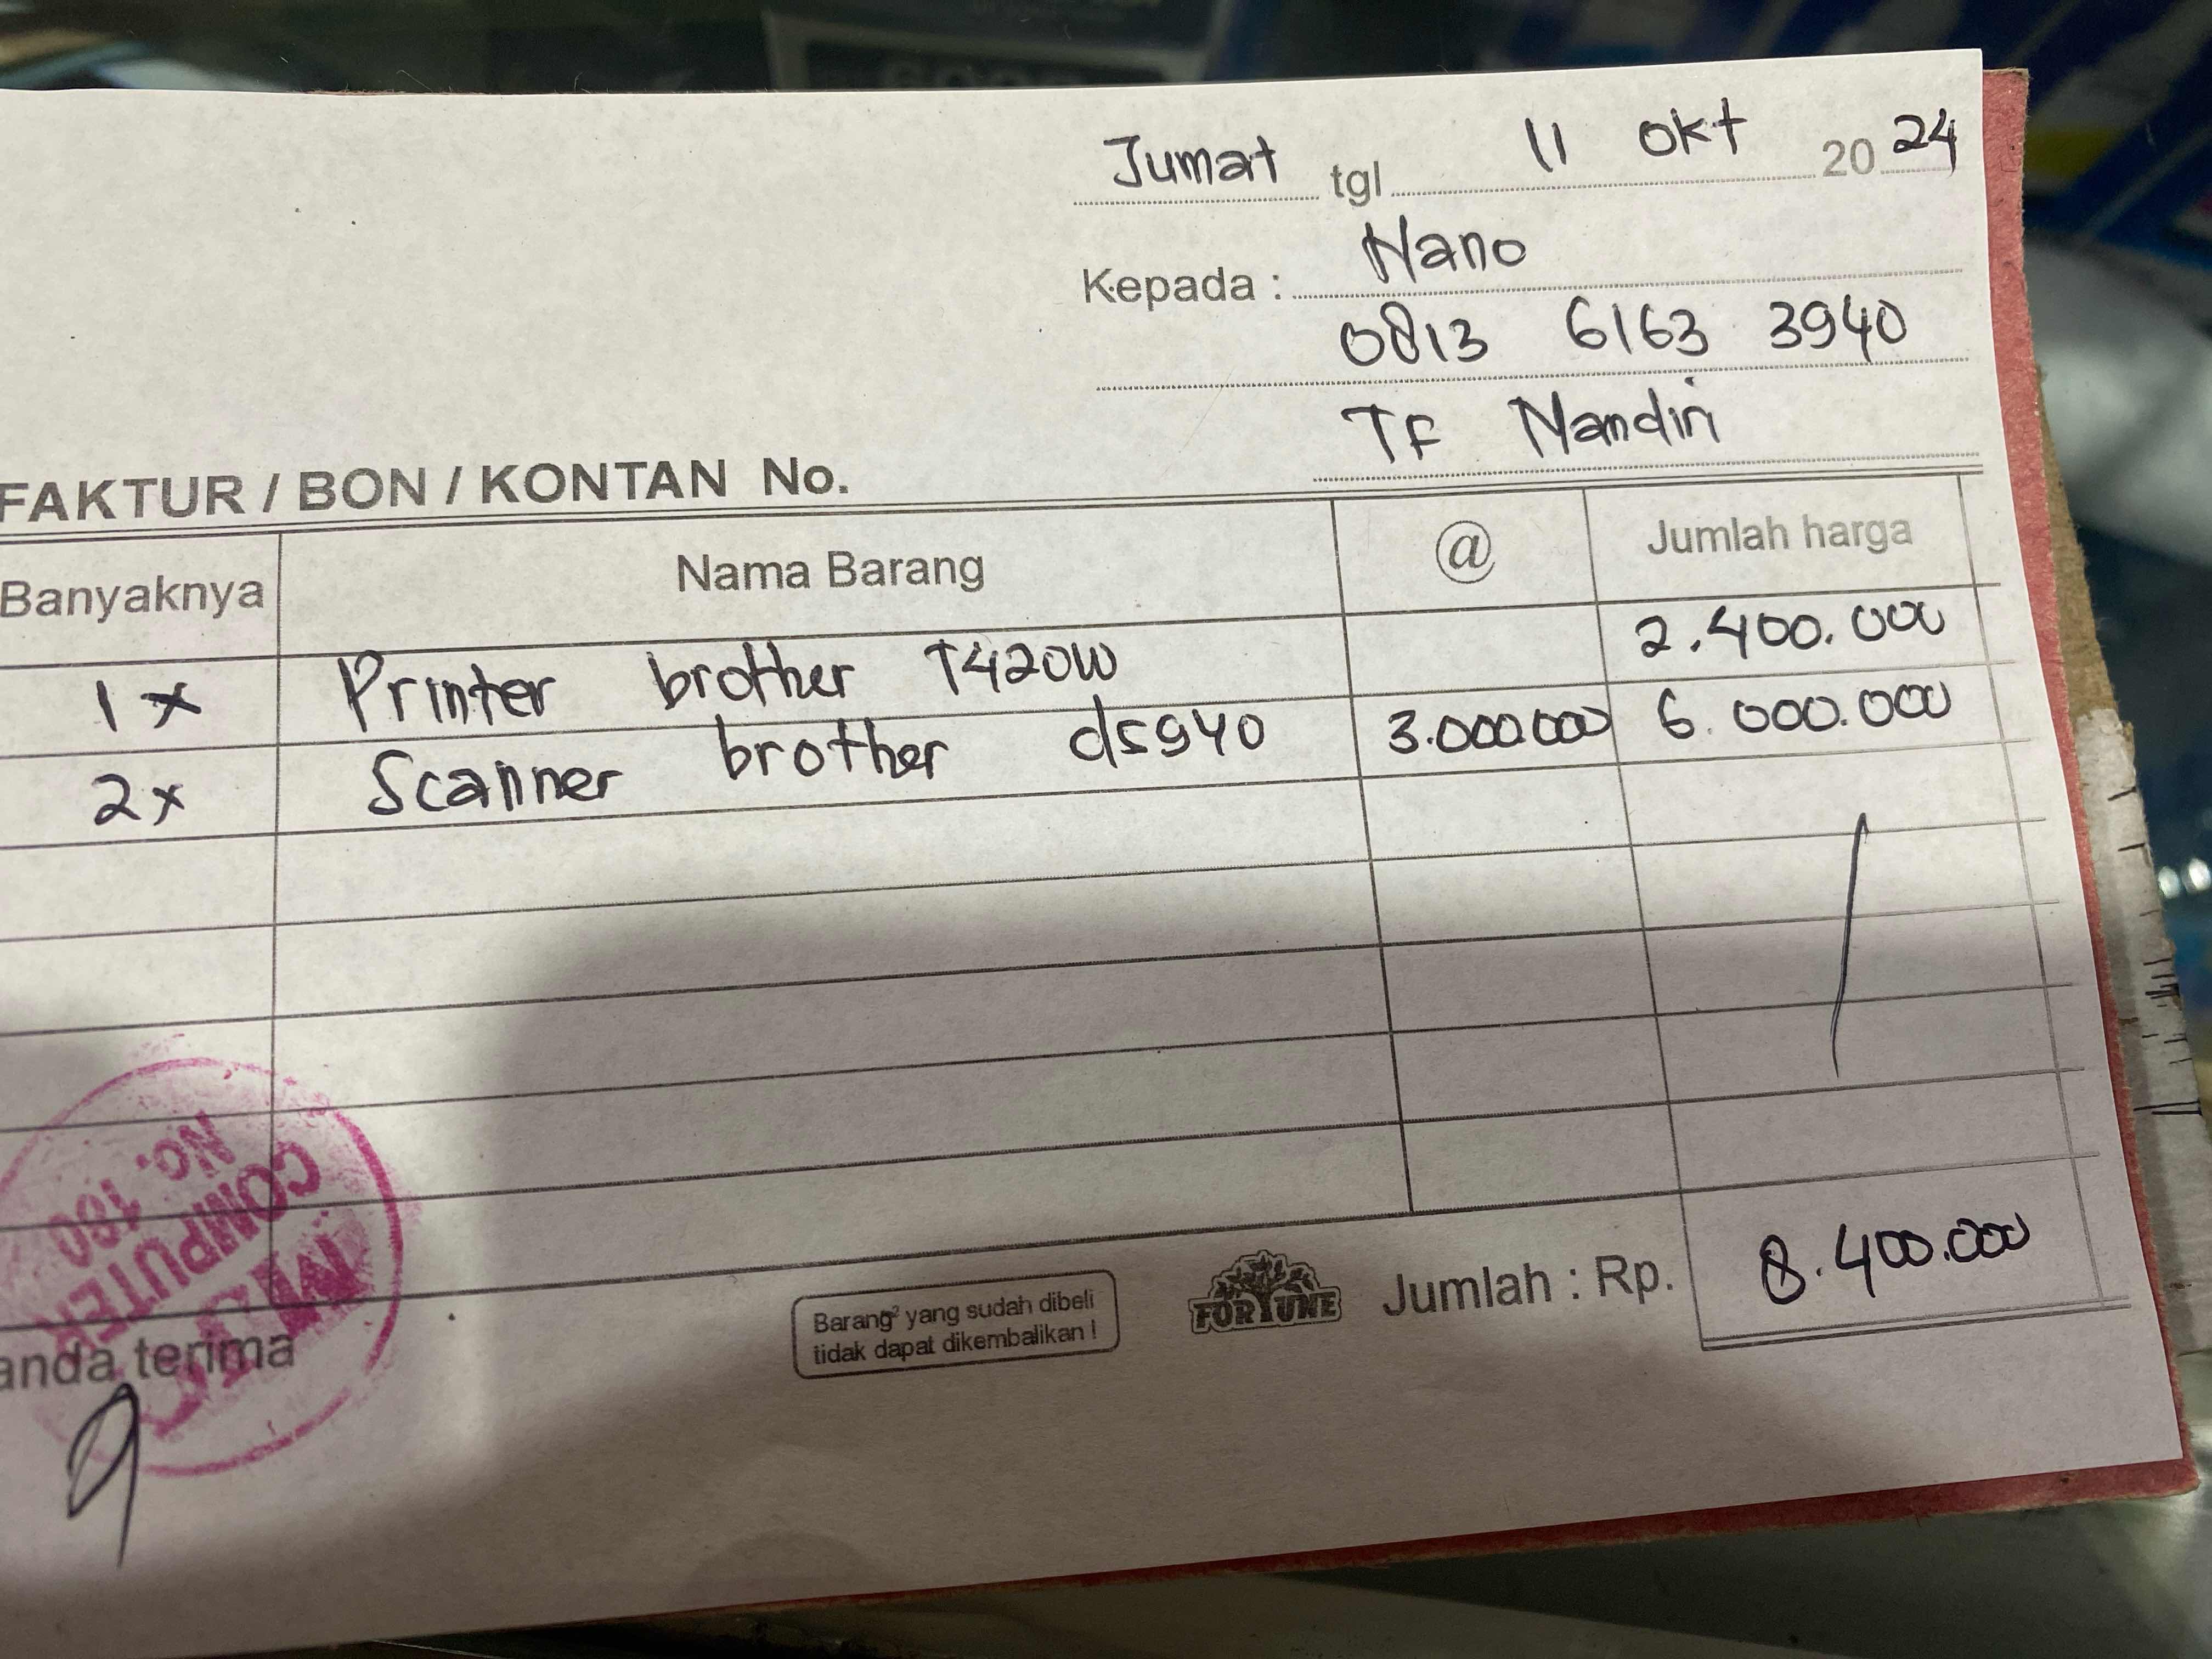 Jumat tgl 11 Okt 2024
Kepada : Nano
0813 6163 3940
TF Mandiri
FAKTUR / BON / KONTAN No.
Banyaknya Nama Barang @ Jumlah harga
1x Printer brother T420W 2.400.000
2x Scanner brother ds940 3.000.000 6.000.000
No. 180
COMPUTER
Barang² yang sudah dibeli
tidak dapat dikembalikan !
FORTUNE
Jumlah : Rp. 8.400.000
anda terima